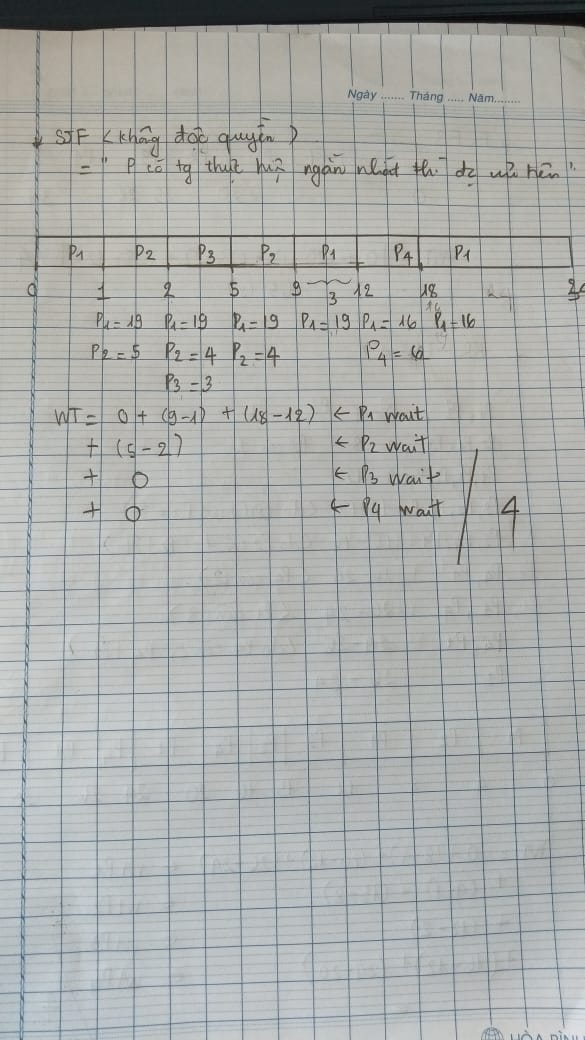 Ngày ....... Tháng ..... Năm........
SJF (không độc quyền)
= " P có tg thực hiện ngắn nhất thì đc ưu tiên"
P1 P2 P3 P2 P1 P4 P1
0 1 2 5 9 3 12 18
P1 = 19 P1 = 19 P1 = 19 P1 = 19 P1 = 16 P1 = 16
P2 = 5 P2 = 4 P2 = 4 P4 = 6
P3 = 3
WT = 0 + (9-1) + (18-12) ← P1 wait
+ (5-2) ← P2 wait
+ 0 ← P3 wait
+ 0 ← P4 wait / 4